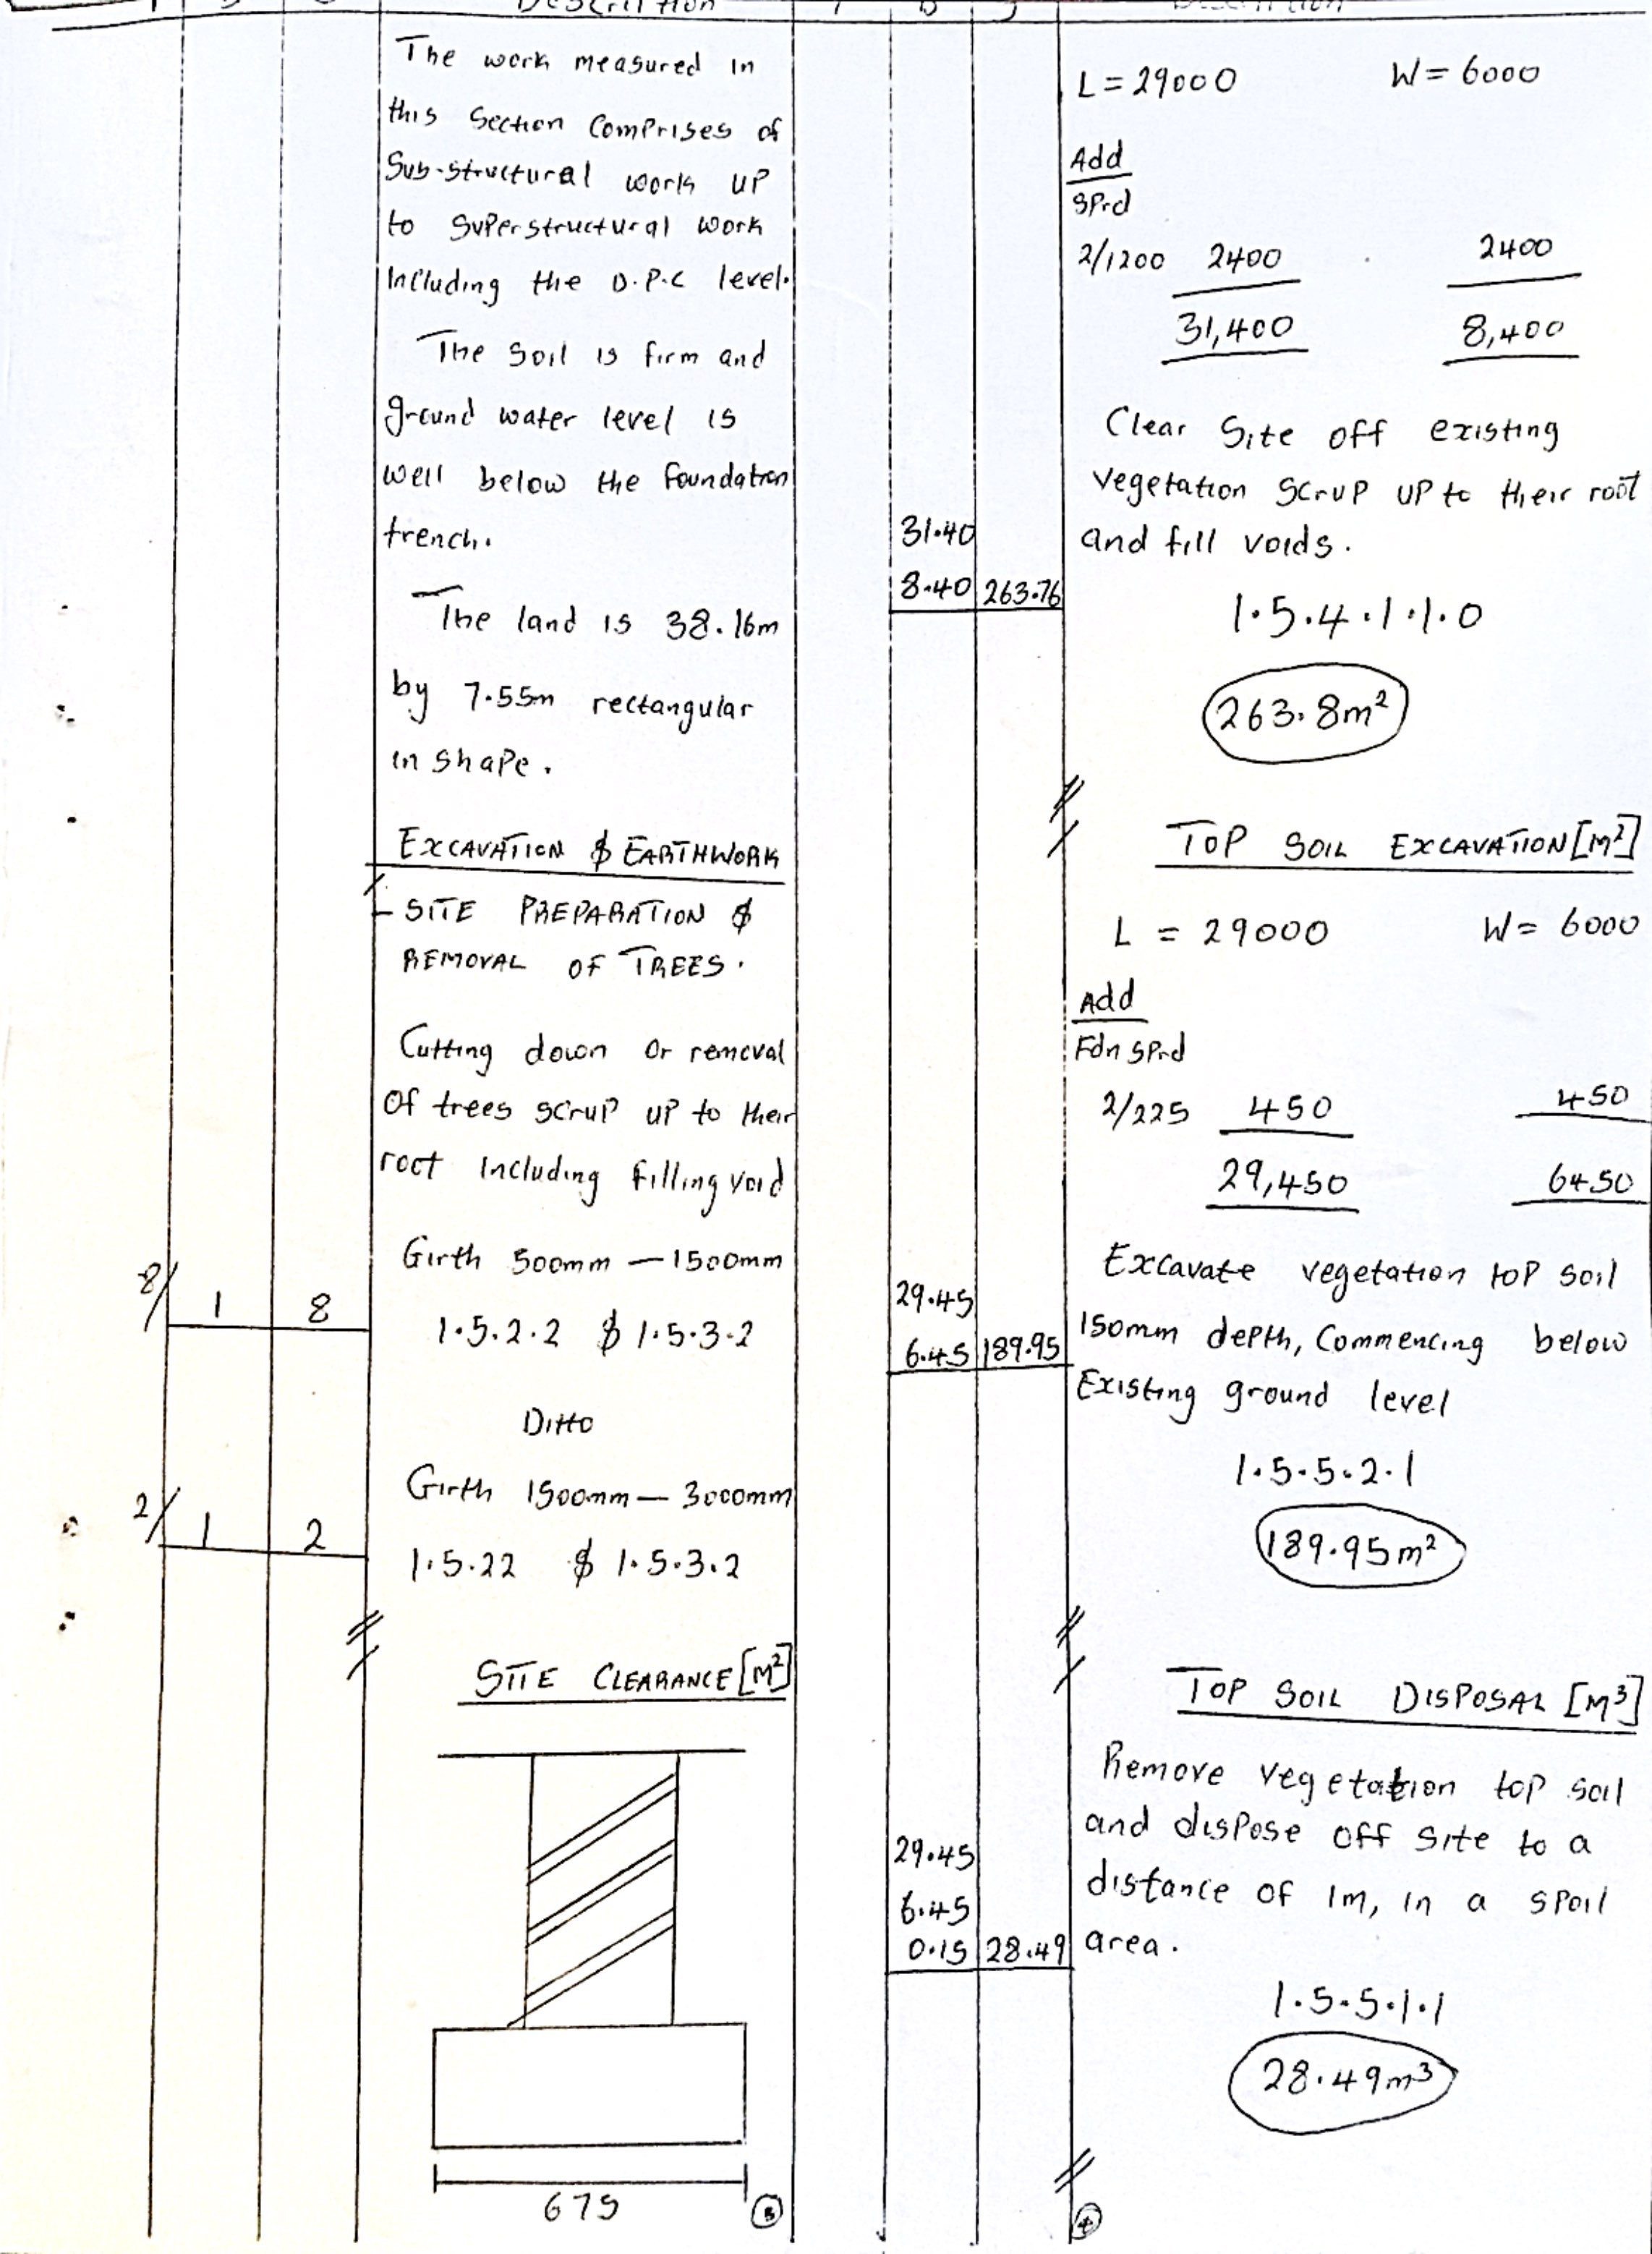 Description
Description
The work measured in
this Section Comprises of
Sub-structural work up
to Superstructural work
Including the D.P.C level.
The Soil is firm and
ground water level is
well below the foundation
trench.
The land is 38.16m
by 7.55m rectangular
in shape.
EXCAVATION & EARTHWORK
- SITE PREPARATION &
REMOVAL OF TREES.
Cutting down or removal
Of trees scrup up to their
root Including filling void
Girth 500mm — 1500mm
8/ 1 8
1.5.2.2 & 1.5.3.2
Ditto
Girth 1500mm — 3000mm
2/ 1 2
1.5.22 & 1.5.3.2
SITE CLEARANCE [M²]
675
3
L = 29000 W = 6000
Add
SPrd
2/1200 2400 2400
31,400 8,400
Clear Site off existing
vegetation scrup up to their root
31.40 and fill voids.
8.40 263.76
1.5.4.1.1.0
263.8m²
TOP SOIL EXCAVATION [M²]
L = 29000 W = 6000
Add
Fdn SPrd
2/225 450 450
29,450 6450
Excavate vegetation top soil
29.45
6.45 189.95 150mm depth, Commencing below
Existing ground level
1.5.5.2.1
189.95m²
TOP SOIL DISPOSAL [M³]
Remove vegetation top soil
and dispose off site to a
29.45
distance of 1m, in a spoil
6.45
0.15 28.49 area.
1.5.5.1.1
28.49m³
4